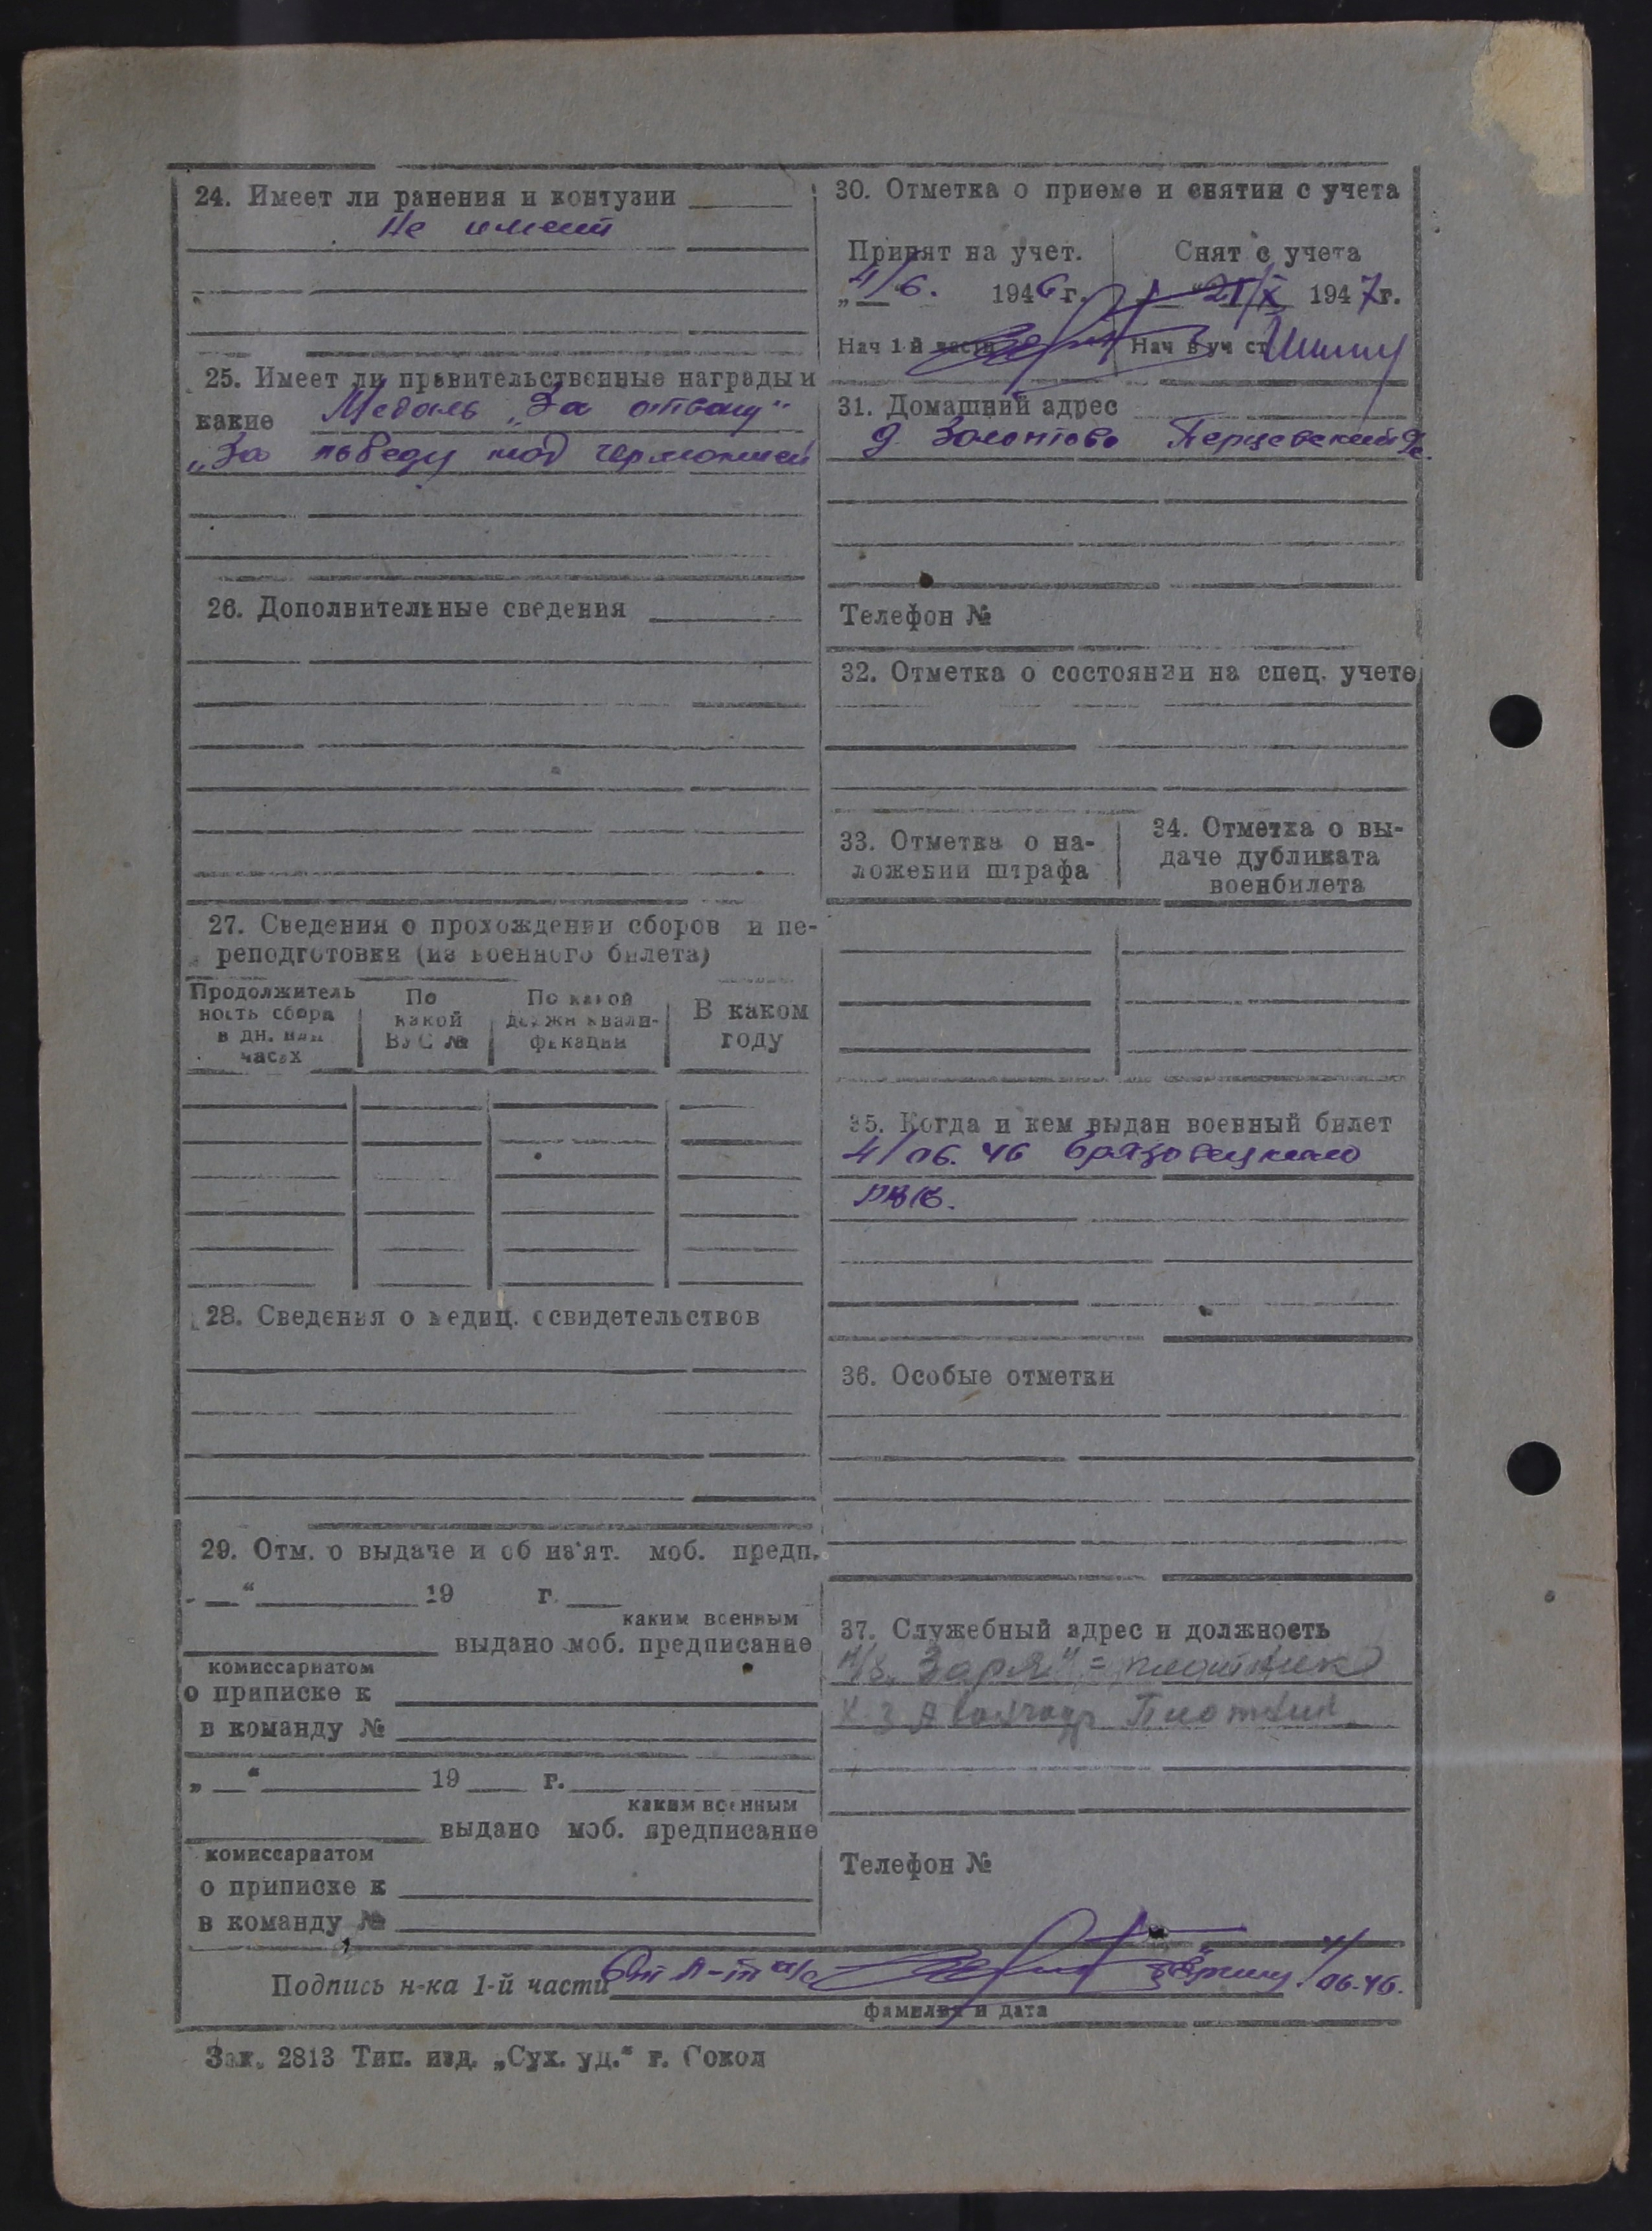 24. Имеет ли ранения и контузии
Не имеет
25. Имеет ли правительственные награды и
какие Медаль „За отвагу"
„За победу над германией
26. Дополнительные сведения
27. Сведения о прохождении сборов и пе-
реподготовки (из военного билета)
Продолжитель
ность сбора
в дн. или
часах
По
какой
ВУС №
По какой
должн квали-
фикации
В каком
году
28. Сведения о медиц. освидетельствов
29. Отм. о выдаче и об из'ят. моб. предп.
„ " 19 г.
каким военным
выдано моб. предписание
комиссариатом
о приписке к
в команду №
„ " 19 г.
каким военным
выдано моб. предписание
комиссариатом
о приписке к
в команду №
30. Отметка о приеме и снятии с учета
Принят на учет. Снят с учета
„4/6. 1946 г. 21/X 1947г.
Нач 1-й части Нач в уч ст
31. Домашний адрес
д. Золотово Перцевский
Телефон №
32. Отметка о состоянии на спец. учете
33. Отметка о на-
ложении штрафа
34. Отметка о вы-
даче дубликата
военбилета
35. Когда и кем выдан военный билет
4/06. 46 Грязовецким
РВК.
36. Особые отметки
37. Служебный адрес и должность
„Заря" = плотник
Плотник
Телефон №
Подпись н-ка 1-й части 4/06.46.
фамилия и дата
Зак. 2813 Тип. изд. „Сух. уд." г. Сокол